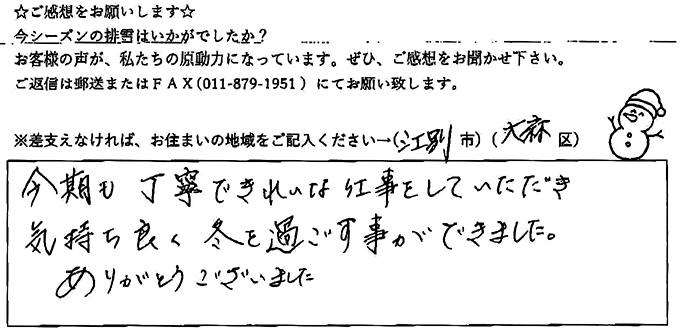 ☆ご感想をお願いします☆
今シーズンの排雪はいかがでしたか？
お客様の声が、私たちの原動力になっています。ぜひ、ご感想をお聞かせ下さい。
ご返信は郵送またはＦＡＸ(011-879-1951）にてお願い致します。
※差支えなければ、お住まいの地域をご記入ください→(江別 市）（大麻 区）
今期も丁寧できれいな仕事をしていただき
気持ち良く冬を過ごす事ができました。
ありがとうございました